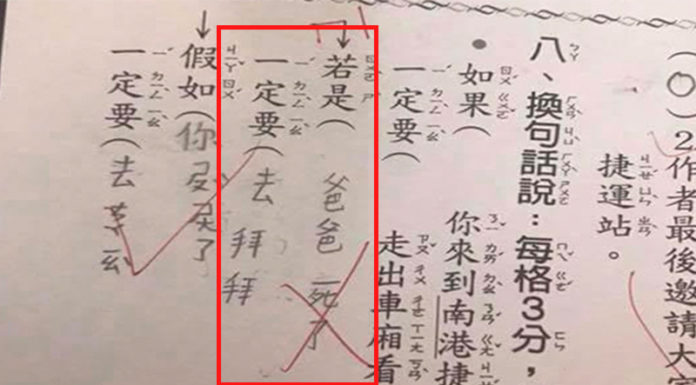 (○)2.作者最後邀請大
捷運站。
八、換句話說：每格3分，
●如果(你來到南港捷
一定要(走出車廂看
↓若是(爸爸死了
一定要(去拜拜
↓假如(你
了
一定要(去